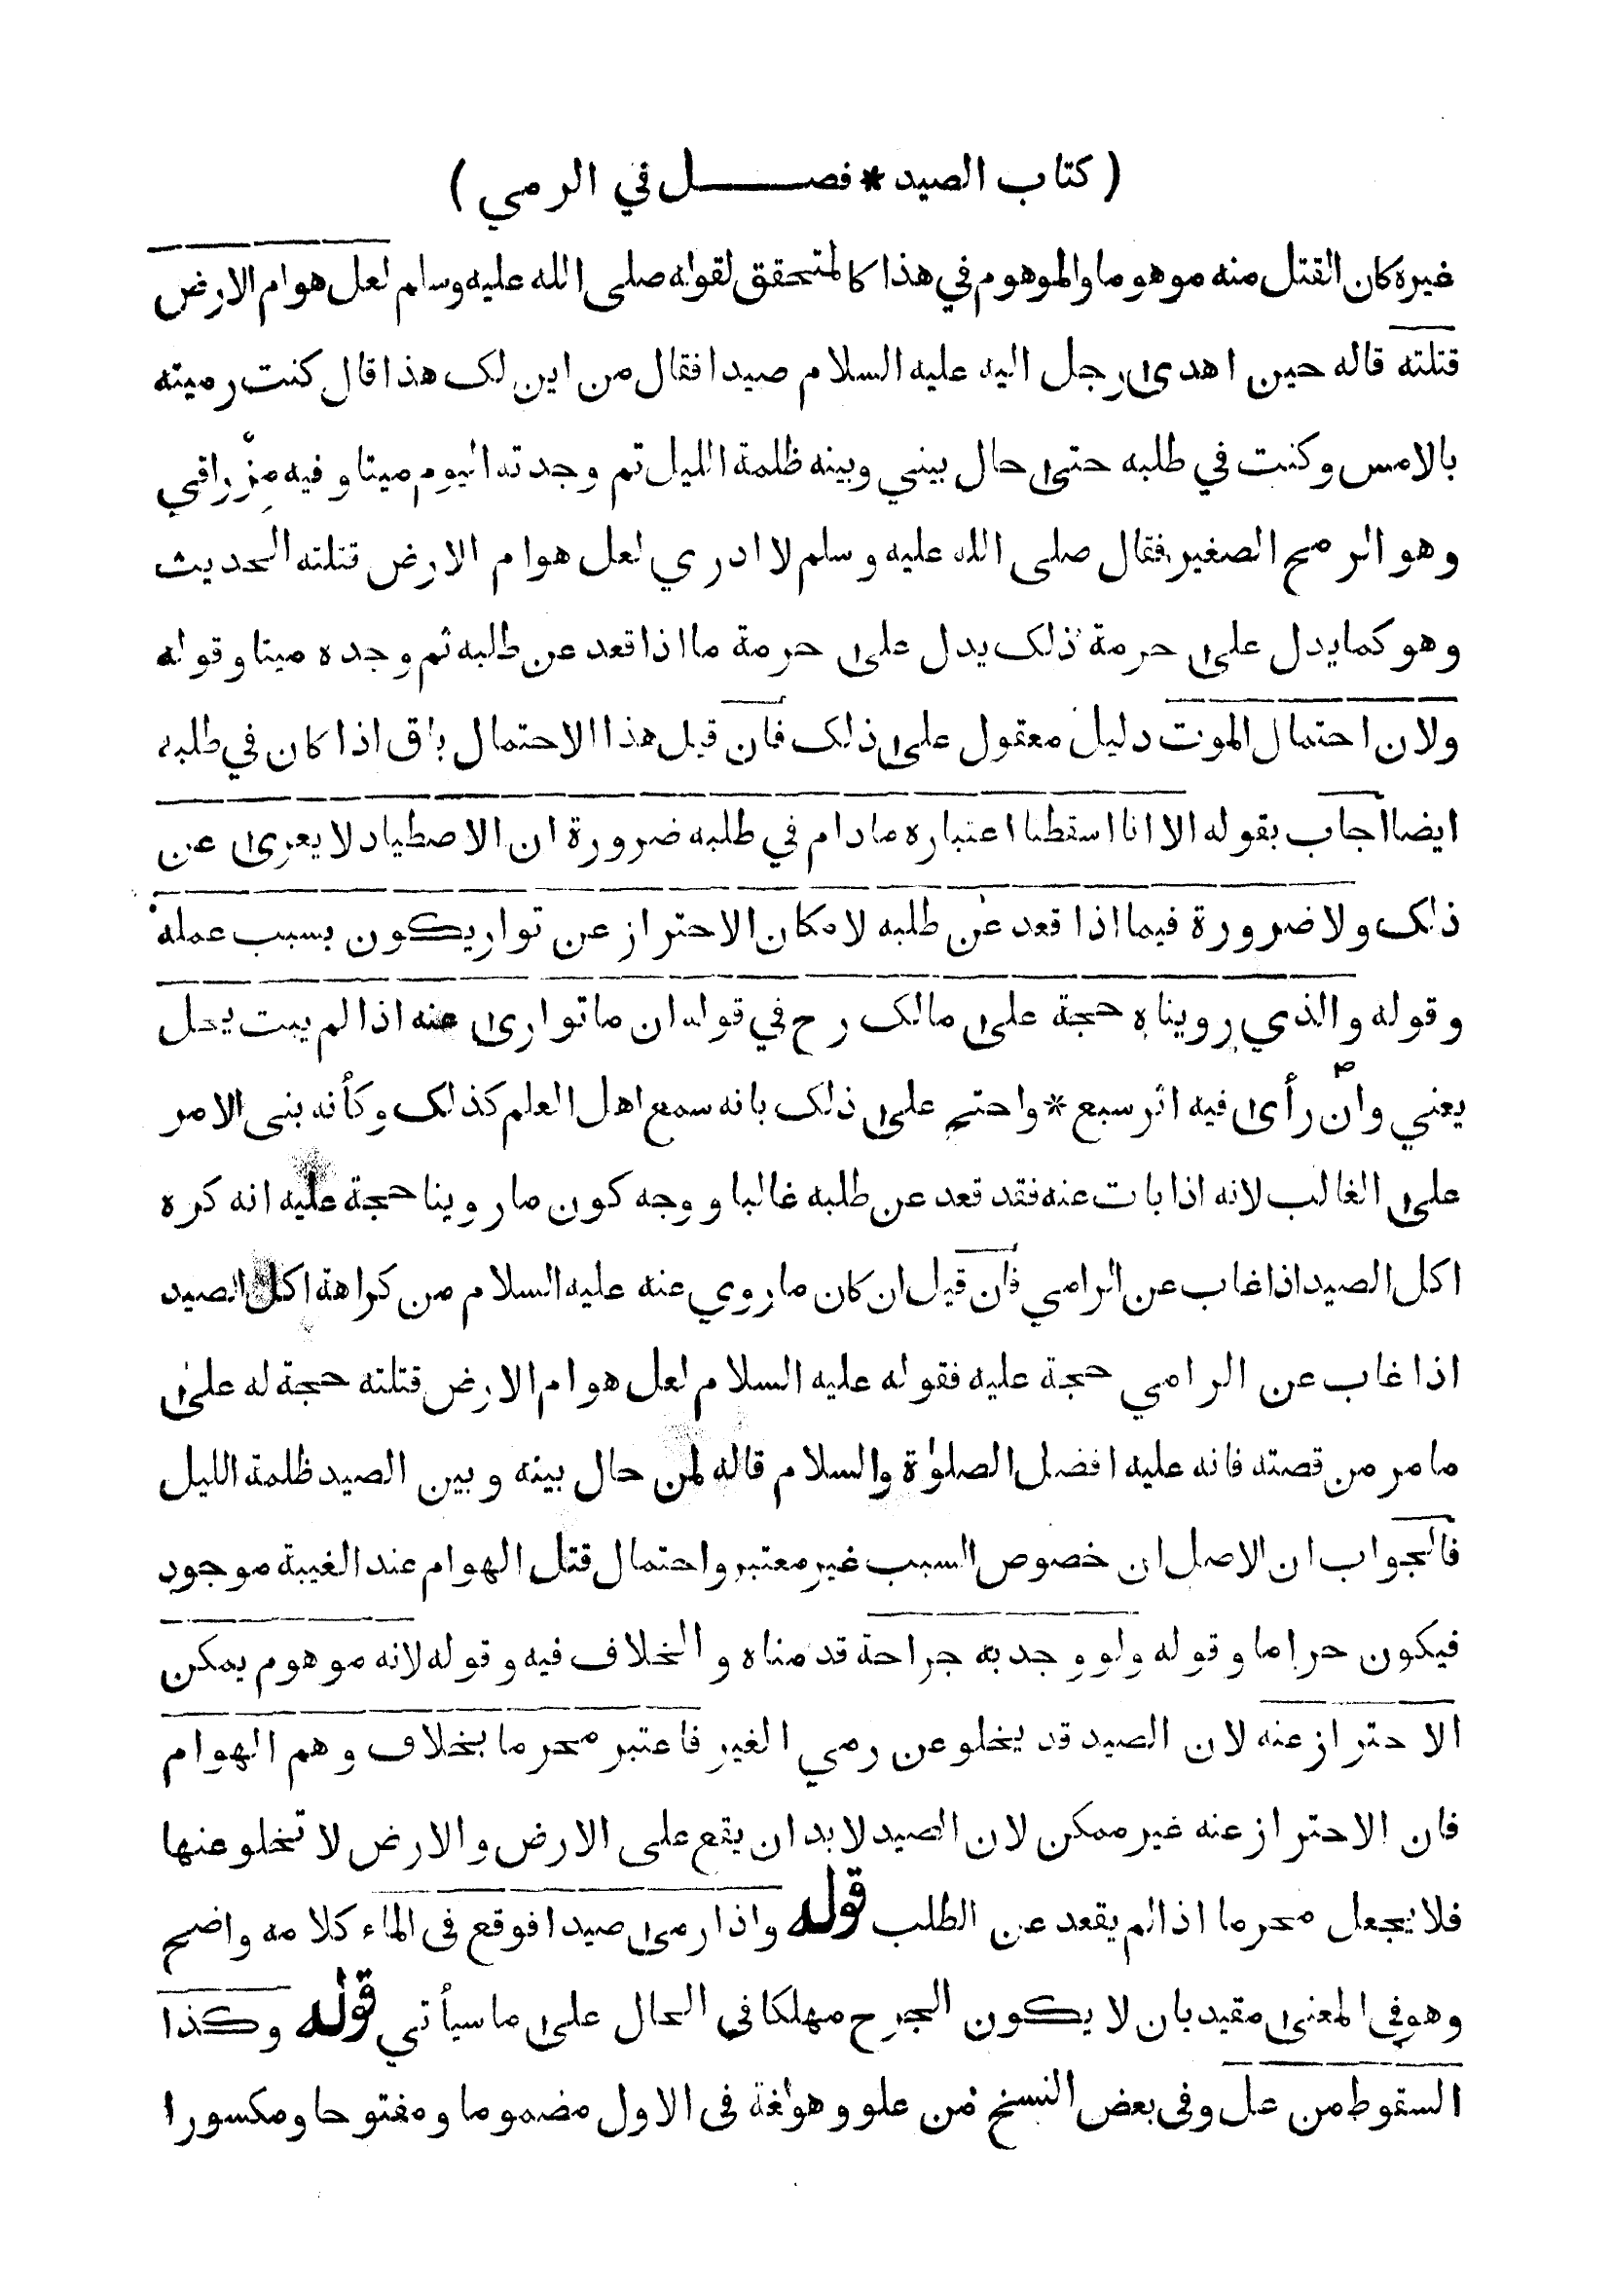 ( كتاب الصيد * فصــــــل في الرمي )
غيره كان القتل منه موهوما والموهوم في هذا كالمتحقق لقوله صلى الله عليه وسلم لعل هوام الارض
قتلته قاله حين اهدى رجل اليه عليه السلام صيدا فقال من اين لك هذا قال كنت رميته
بالامس وكنت في طلبه حتى حال بيني وبينه ظلمة الليل ثم وجدته اليوم ميتا و فيه مِزْراقي
وهو الرمح الصغير فقال صلى الله عليه وسلم لا ادري لعل هوام الارض قتلته الحديث
وهو كما يدل على حرمة ذلك يدل على حرمة ما اذا قعد عن طلبه ثم وجده ميتا و قوله
ولان احتمال الموت دليل معقول على ذلك فان قيل هذا الاحتمال باق اذا كان في طلبه
ايضا اجاب بقوله الا انا اسقطنا اعتباره مادام في طلبه ضرورة ان الاصطياد لا يعرى عن
ذلك ولا ضرورة فيما اذا قعد عن طلبه لامكان الاحتراز عن توار يكون بسبب عمله
وقوله والذي رويناه حجة على مالك رح في قوله ان ما توارى عنه اذا لم يبت يحل
يعني وان رأى فيه اثر سبع * واحتج على ذلك بانه سمع اهل العلم كذلك وكأنه بنى الامر
على الغالب لانه اذا بات عنه فقد قعد عن طلبه غالبا و وجه كون ما روينا حجة عليه انه كره
اكل الصيد اذا غاب عن الرامي فان قيل ان كان ما روي عنه عليه السلام من كراهة اكل الصيد
اذا غاب عن الرامي حجة عليه فقوله عليه السلام لعل هوام الارض قتلته حجة له على
ما مر من قصته فانه عليه افضل الصلوٰة والسلام قاله لمن حال بينه وبين الصيد ظلمة الليل
فالجواب ان الاصل ان خصوص السبب غير معتبر واحتمال قتل الهوام عند الغيبة موجود
فيكون حراما و قوله ولو وجد به جراحة قدمناه و الخلاف فيه و قوله لانه موهوم يمكن
الاحتراز عنه لان الصيد قد يخلو عن رمي الغير فاعتبر محرما بخلاف وهم الهوام
فان الاحتراز عنه غير ممكن لان الصيد لابد ان يقع على الارض والارض لا تخلو عنها
فلا يجعل محرما اذا لم يقعد عن الطلب قوله واذا رمى صيدا فوقع فى الماء كلامه واضح
وهو في المعنى مقيد بان لا يكون الجرح مهلكا في الحال على ما سيأتي قوله وكذا
السقوط من عل وفى بعض النسخ من علو وهو لغة فى الاول مضموما ومفتوحا ومكسورا